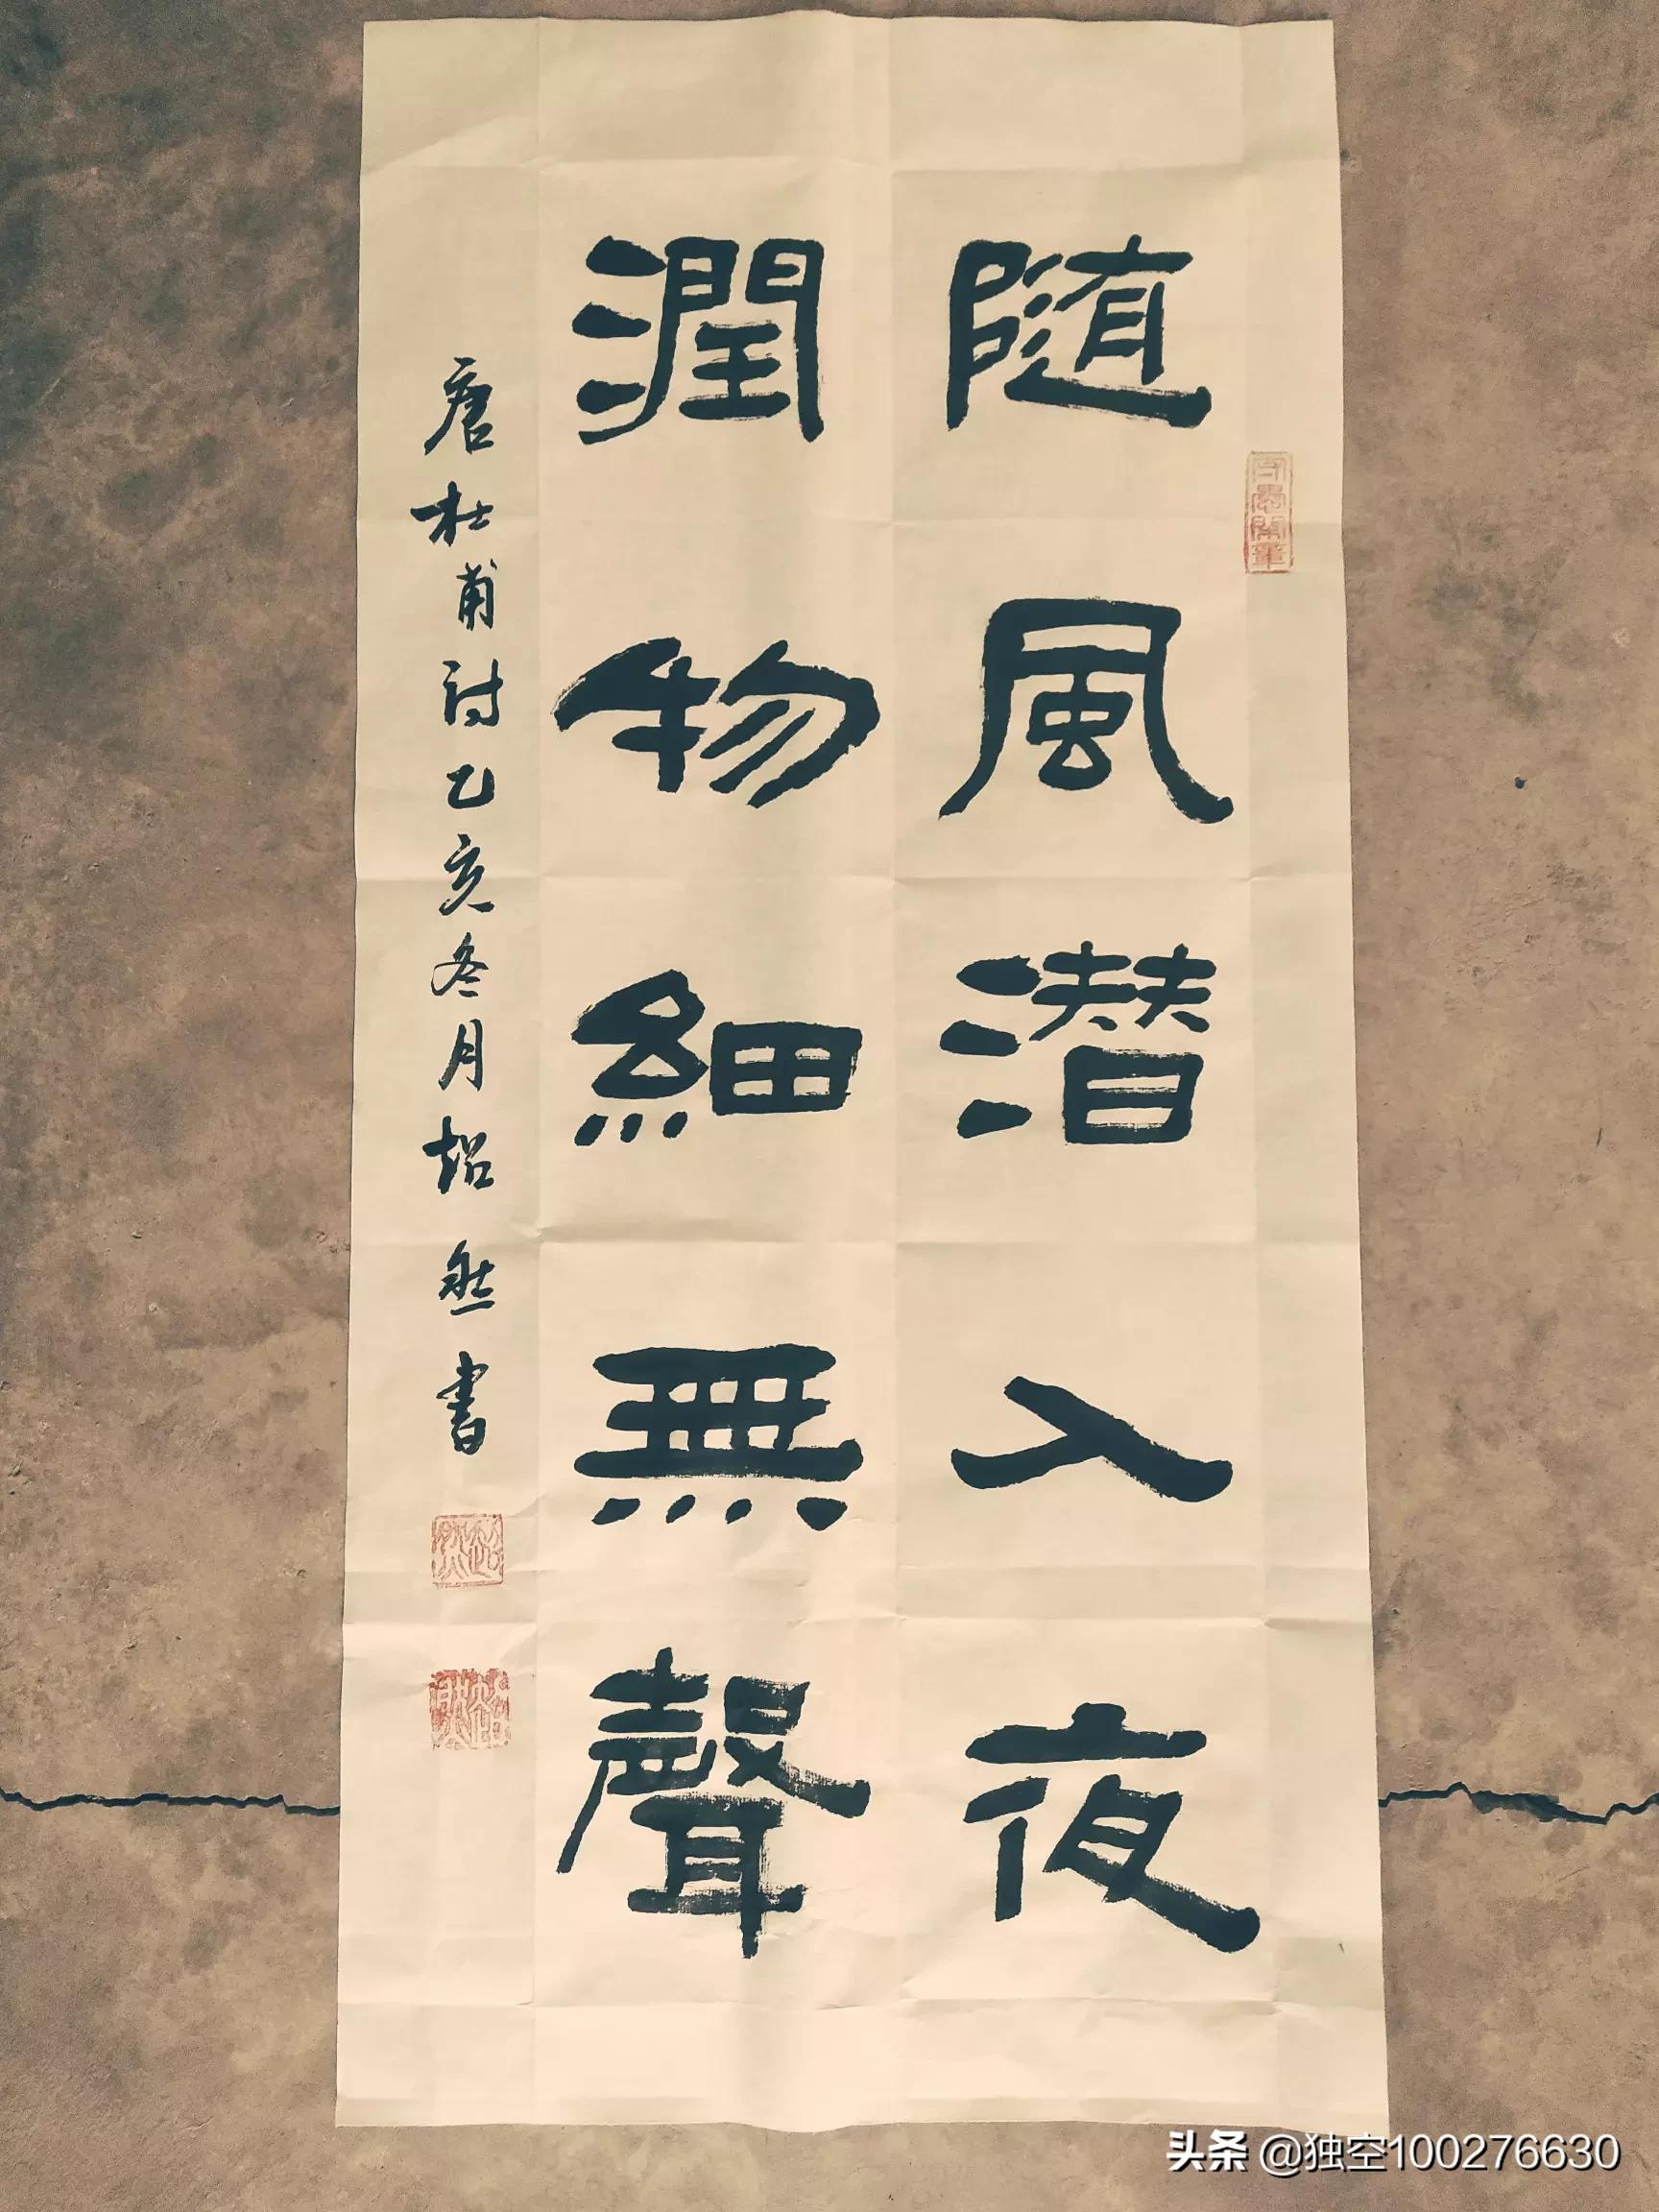 随風潜入夜
潤物細無聲
唐杜甫詩乙亥冬月超然書
超然
超然
头条 @独空100276630